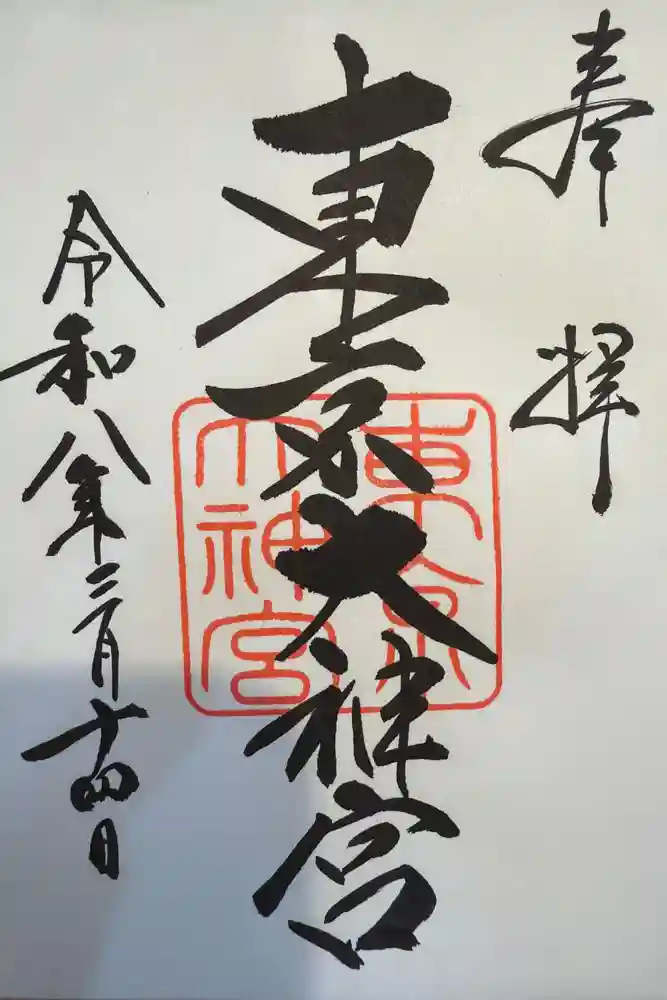 奉拝
東京大神宮
東京大神宮
令和八年三月十四日